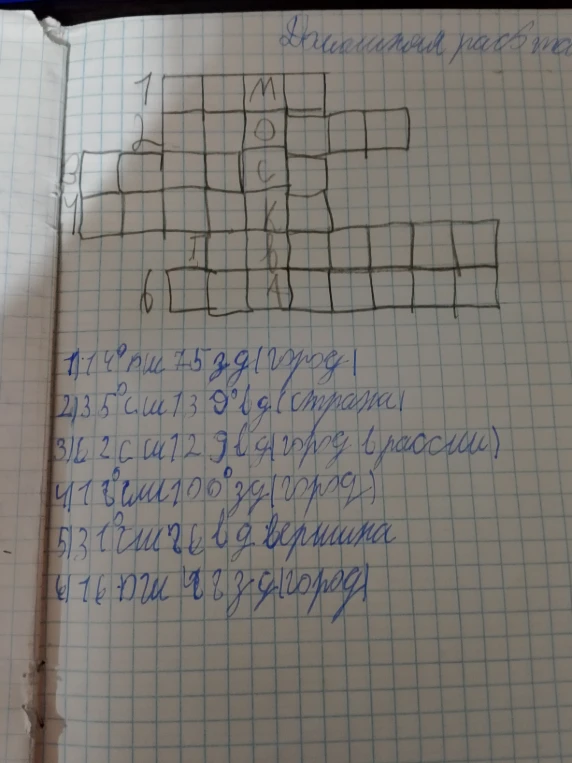 Домашняя работа
1 М
2 О
3 С
4 К
5 В
6 А
1) 14° пш 75 зд (город)
2) 35° сш 139° вд (страна)
3) 62 сш 129 вд (город в расси)
4) сш 100° зд (город)
5) 31° вд вершина
6) 16 пш зд (город)